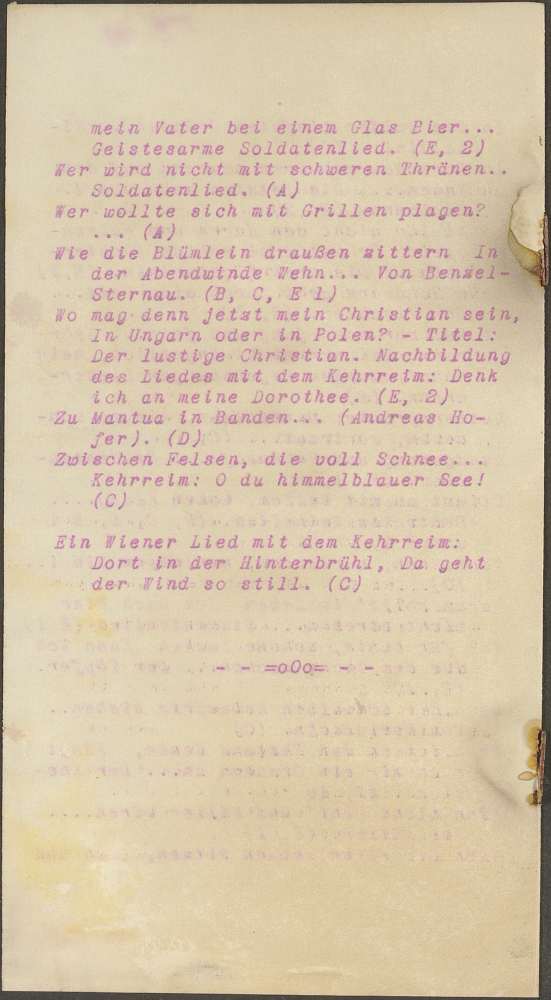 mein Vater bei einem Glas Bier...
Geistesarme Soldatenlied. (E, 2)
Wer wird nicht mit schweren Thränen..
Soldatenlied. (A)
Wer wollte sich mit Grillen plagen?
... (A)
Wie die Blümlein draußen zittern In
der Abendwinde Wehn... Von Benzel-
Sternau. (B, C, E 1)
Wo mag denn jetzt mein Christian sein,
In Ungarn oder in Polen? - Titel:
Der lustige Christian. Nachbildung
des Liedes mit dem Kehrreim: Denk
ich an meine Dorothee. (E, 2)
Zu Mantua in Banden... (Andreas Ho-
fer). (D)
Zwischen Felsen, die voll Schnee...
Kehrreim: O du himmelblauer See!
(C)
Ein Wiener Lied mit dem Kehrreim:
Dort in der Hinterbrühl, Da geht
der Wind so still. (C)
- - =oOo= - -